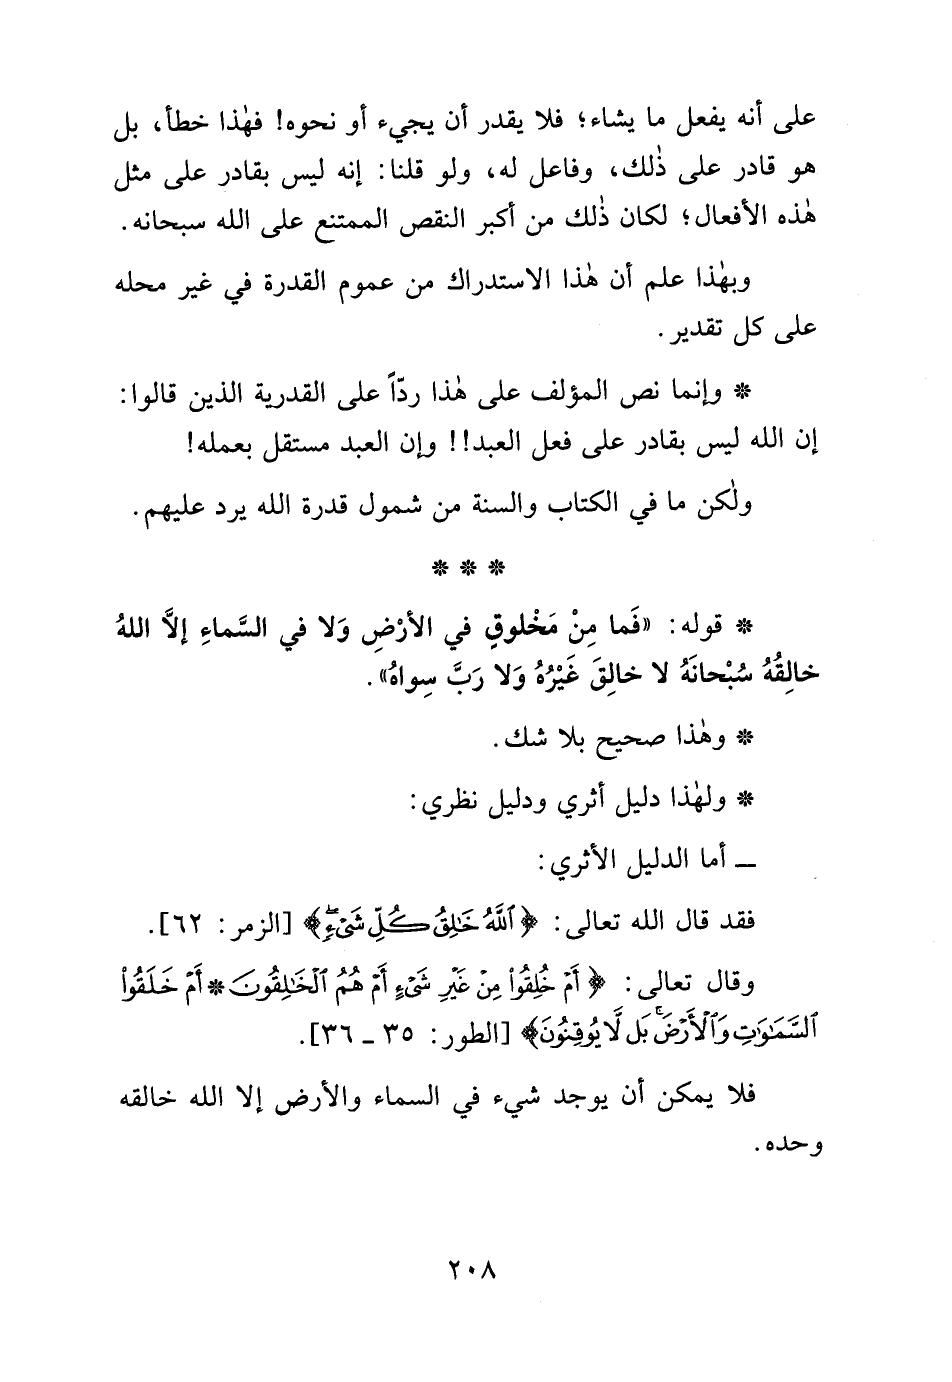 على أنه يفعل ما يشاء؛ فلا يقدر أن يجيء أو نحوه! فهٰذا خطأ، بل
هو قادر على ذٰلك، وفاعل له، ولو قلنا: إنه ليس بقادر على مثل
هٰذه الأفعال؛ لكان ذٰلك من أكبر النقص الممتنع على الله سبحانه.
وبهٰذا علم أن هٰذا الاستدراك من عموم القدرة في غير محله
على كل تقدير.
* وإنما نص المؤلف على هٰذا ردّاً على القدرية الذين قالوا:
إن الله ليس بقادر على فعل العبد!! وإن العبد مستقل بعمله!
ولٰكن ما في الكتاب والسنة من شمول قدرة الله يرد عليهم.
* * *
* قوله: «فَما مِنْ مَخْلوقٍ في الأرْضِ وَلا في السَّماءِ إلاَّ اللهُ
خالِقُهُ سُبْحانَهُ لا خالِقَ غَيْرُهُ وَلا رَبَّ سِواهُ».
* وهٰذا صحيح بلا شك.
* ولهٰذا دليل أثري ودليل نظري:
ـ أما الدليل الأثري:
فقد قال الله تعالى: ﴿ٱللَّهُ خَٰلِقُ كُلِّ شَىْءٍۖ﴾ [الزمر: ٦٢].
وقال تعالى: ﴿أَمْ خُلِقُوا۟ مِنْ غَيْرِ شَىْءٍ أَمْ هُمُ ٱلْخَٰلِقُونَ * أَمْ خَلَقُوا۟
ٱلسَّمَٰوَٰتِ وَٱلْأَرْضَۚ بَل لَّا يُوقِنُونَ﴾ [الطور: ٣٥ ـ ٣٦].
فلا يمكن أن يوجد شيء في السماء والأرض إلا الله خالقه
وحده.
٢٠٨